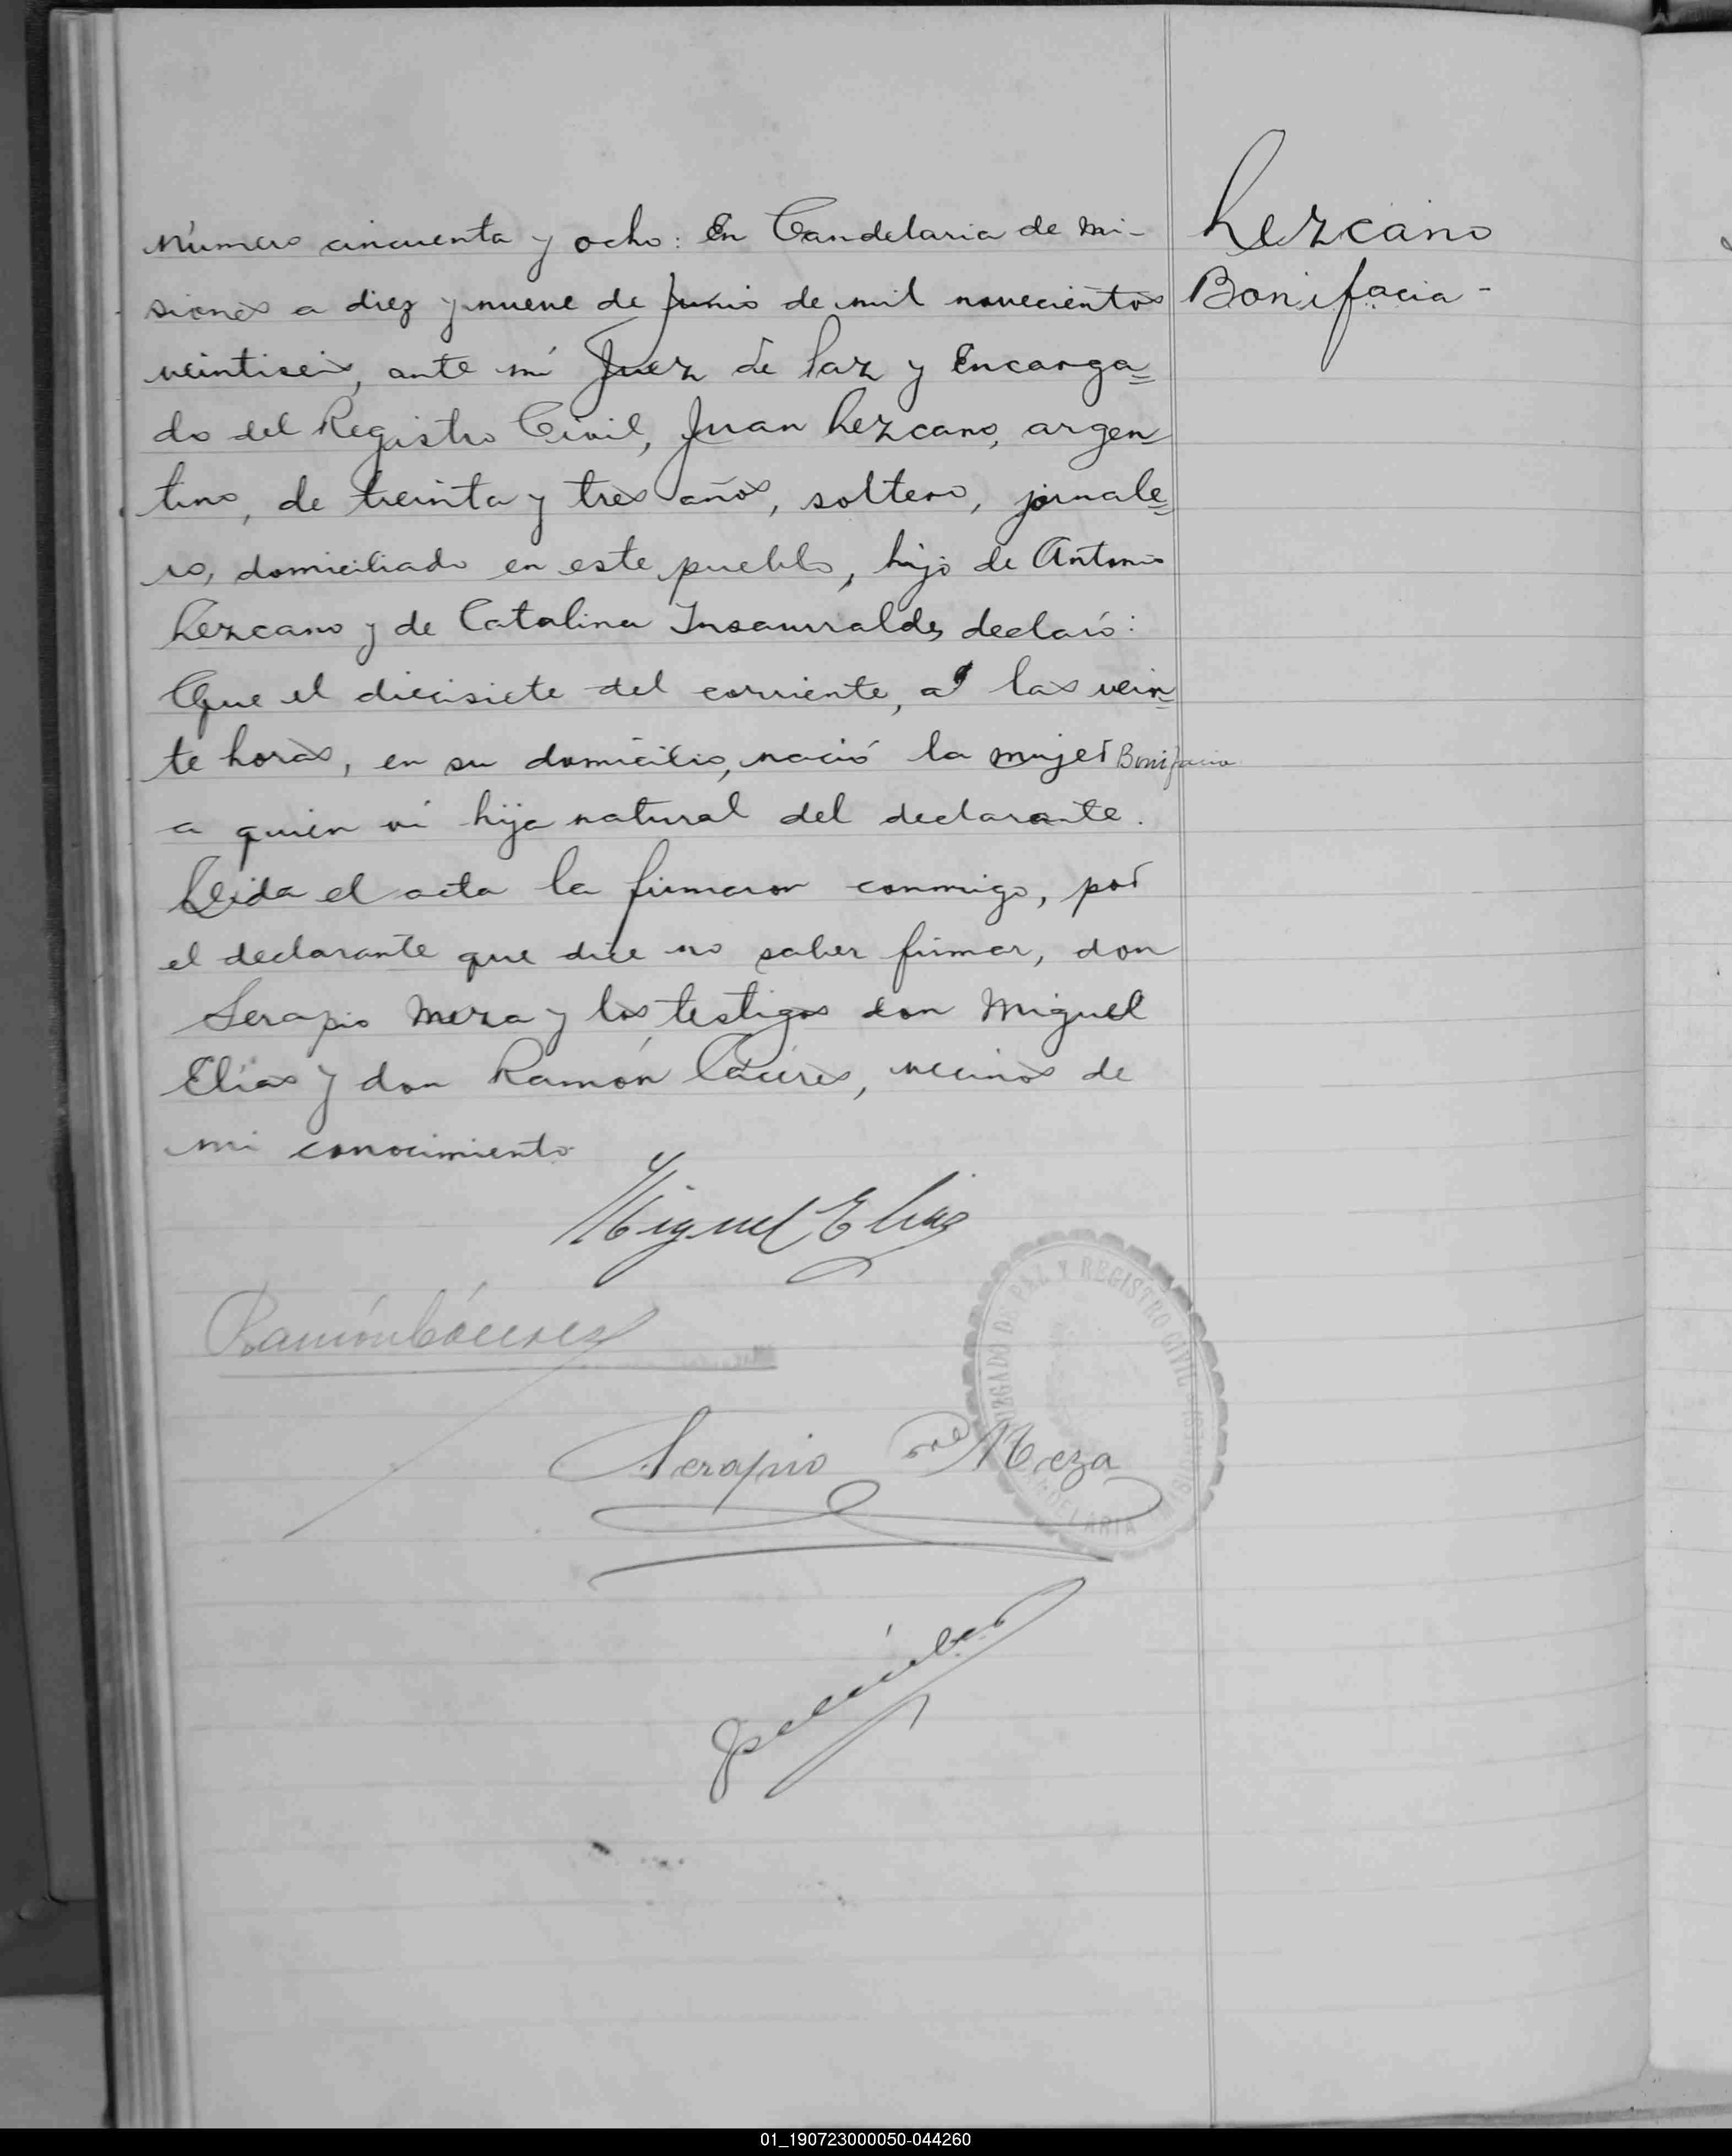 Lezcano
Bonifacia -
Número cincuenta y ocho: En Candelaria de Mi-
siones a diez y nueve de Junio de mil novecientos
veintiseis, ante mí Juez de Paz y Encarga=
do del Registro Civil, Juan Lezcano, argen=
tino, de treinta y tres años, soltero, jornale=
ro, domiciliado en este pueblo, hijo de Antonio
Lezcano y de Catalina Insaurralde, declaró:
Que el diecisiete del corriente, a las vein=
te horas, en su domicilio, nació la mujer Bonifacia
a quien vi hija natural del declarante.
Leida el acta la firmaron conmigo, por
el declarante que dice no saber firmar, don
Serapio Meza y los testigos don Miguel
Elías y don Ramón Cáceres, vecinos de
mi conocimiento
Miguel Elias
Ramón Cáceres
JUZGADO DE PAZ Y REGISTRO CIVIL
CANDELARIA
Serapio Meza
01_190723000050-044260